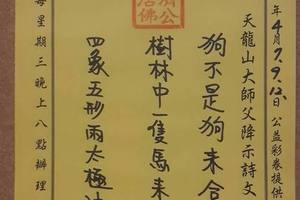 年4月7.9.12日公益彩卷提供
天龍山大師父降示詩文
狗不是狗未合
濟公活佛
樹林中一隻馬未
四象五形兩太極
每星期三晚上八點辦理